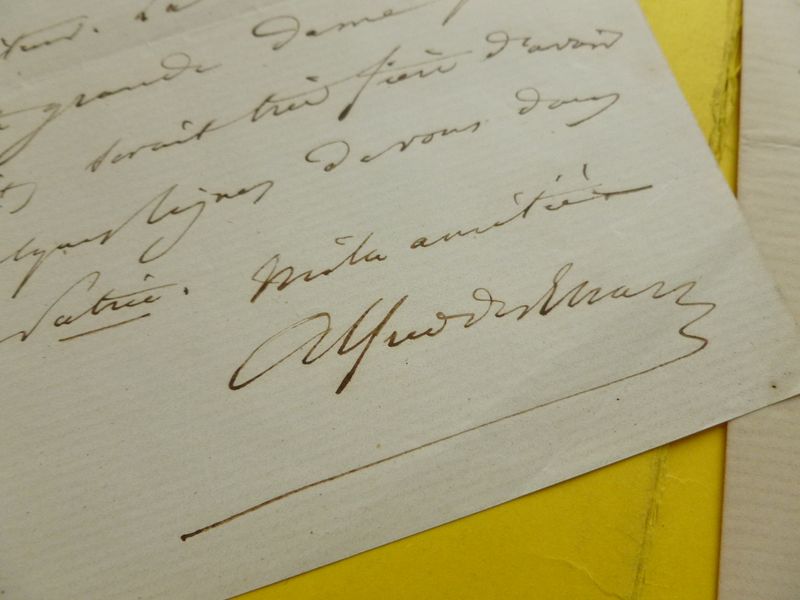 grande dame
serait très fière d'avoir
lignes de vous dans
Patrie. Mille amitiés
Alfred des Essarts